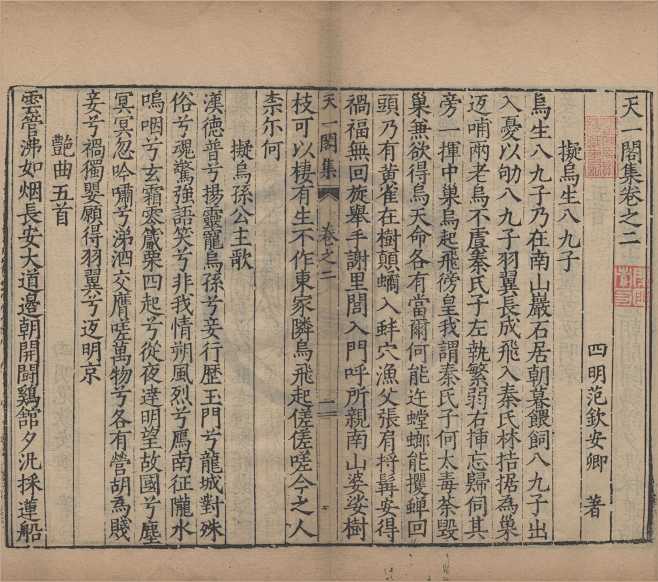 天一閣集卷之二
四明范欽安卿 著
擬烏生八九子
烏生八九子乃在南山巖石居朝募餵飼八九子出
入憂以劬八九子羽翼長成飛入秦氏林拮据為巢
迓哺兩老烏不虞秦氏子左執繁弱右揷忘歸伺其
旁一揮中巢烏起飛徬皇我謂秦氏子何太毒荼毀
巢兼欲得烏天命各有當爾何能迕螳螂能攫蟬回
頭乃有黃雀在樹顛蝺入蚌穴漁父張肩捋髯安得
禍福無回旋舉手謝里閭入門呼所親南山婆娑樹
天一閣集 卷之二 一
枝可以棲有生不作東家隣烏飛起傞傞嗟今之人
柰尓何
擬烏孫公主歌
漢德普兮揚靈寵烏孫兮妾行歷玉門兮龍城對殊
俗兮魂驚強語笑兮非我情朔風烈兮鴈南征隴水
嗚咽兮玄霜零觱栗四起兮從夜達明望故國兮塵
冥冥忽吟嘯兮涕泗交膺嗟萬物兮各有營胡為賤
妾兮禍獨嬰願得羽翼兮迓明京
豔曲五首
雲管沸如烟長安大道邊朝開鬪鷄舘夕汎採蓮船